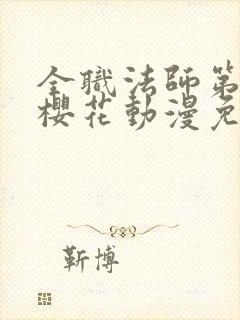 全職法師第
櫻花動漫免
靳博